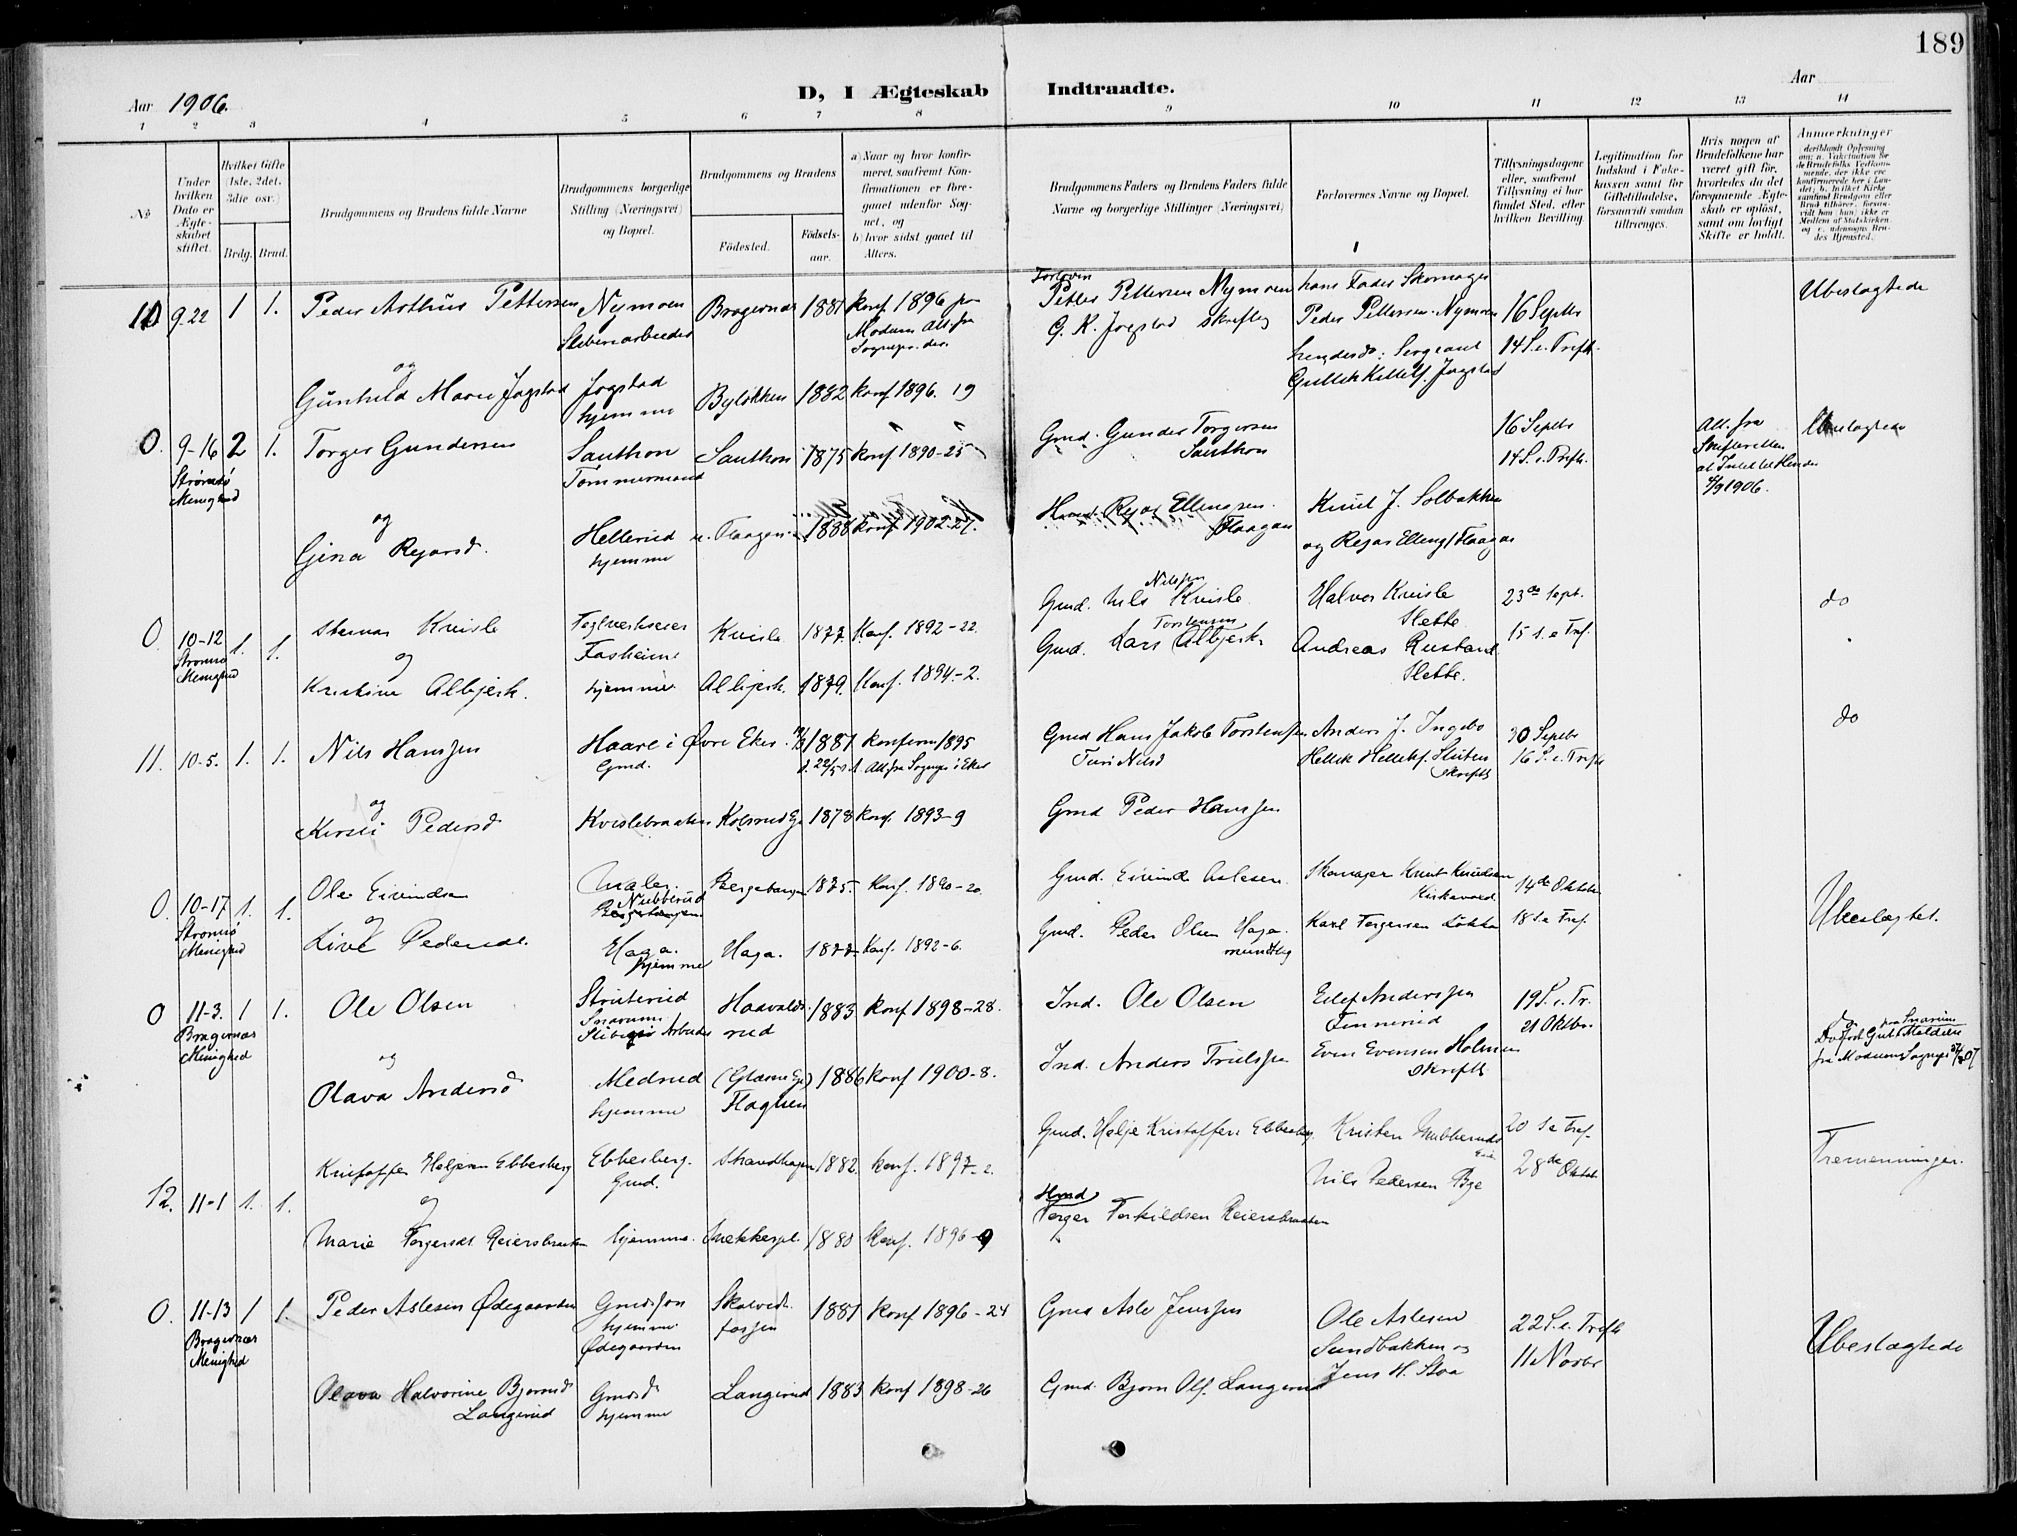 189
Aar 1906.
D, I Ægteskab Indtraadte.
Aar
1 2 3 4 5 6 7 8 9 10 11 12 13 14
No
Under hvilken Dato er Ægteskabet stiftet.
Hvilket Gifte (1ste, 2det, 3die osv.)
Brdg. Brud.
Brudgommens og Brudens fulde Navne
Brudgommens borgerlige Stilling (Næringsvei) og Bopæl.
Brudgommens og Brudens
Fødested.
Fødselsaar.
a) Naar og hvor konfirmeret, saafremt Konfirmationen er foregaaet udenfor Sognet, og
b) hvor sidst gaaet til Alters.
Brudgommens Faders og Brudens Faders fulde Navne og borgerlige Stillinger (Næringsvei)
Forlovernes Navne og Bopæl.
Tillysningsdagene eller, saafremt Tillysning ei har fundet Sted, efter hvilken Bevilling
Legitimation for Indskud i Enkekassen samt for Giftetilladelse, forsaavidt saadan tiltrænges.
Hvis nogen af Brudefolkene har været gift før, hvorledes da det foregaaende Ægteskab er opløst, samt om lovligt Skifte er holdt.
Anmærkninger
10 9.22 1 1. Peder Arthur Pettersen Nymoen Bragernæs 1881 konf. 1896 paa Modum Att. fra
Sliberiarbeider
Petter Pettersen Nymoen hans Fader Skomager
G. K. Jogstad skriftlig Peder Pettersen Nymoen 16 Septbr Ubeslægtede
hendes do: Sergeant 14 S. e. Trefh.
Gullik Kittelf. Jogstad
og
Gunhild Marie Jogstad Jogstad hjemme Byløkken 1882 konf 1896. 19
0. 9-16 2 1. Torger Gundersen Santhon Santhon 1875 konf. 1890-25
Strømsø Menighed Tømmermand
Gmd. Gunder Torgersen Santhon 16 Septbr Att. fra Ubeslægtede
14 S. e. Trefh. Skifteretten
4/9 1906.
og
Gina Reyersd. Hellerud hjemme Flaagan 1888 konf 1902-27.
Reyer Ellengsen Flaagan Knut J. Solbakken
og Reyer Elleng. Flaagan
0. 10-12 1. 1. Kvisle Teglverkseier Kvisle 1877. Konf. 1892-22.
Strømsø Menighed Fosheim
Gmd. Nils Nilssen Kvisle Halvor Kvisle Slette 23de Sept. do
og
Kristine Albjerk. hjemme Albjerk. 1879. Konf. 1894-2.
Gmd. Lars Torstensen Albjerk Andreas Rustand Slette. 15 S. e Tref.
11. 10-5. 1. 1. Nils Hanssen Haare i Øvre Eker 1881 konferm 1895
Gmd. Att. fra Sognepr. i Eker
Gmd Hans Jakob Torstenssen Anders J. Ingebo 30 Septbr do
Turi Nilsd Hellek Hellekf. skriftl 16 S. e. Trefh
og
Kirsti Pedersd Kvislebraaten Kolsrud Ge 1878 konf. 1893-9 Gmd Peder Hanssen
0. 10-17 1. 1. Ole Eivindsen Maler. Nubberud Bergetangen 1875. Konf. 1890-20
Strømsø Menighed
Gmd. Eivind Aslesen Skomager Knut Knudsen Kirkevold 14de Oktober
og
Live Pedersd. Haga. hjemme Haga. 1877 Konf. 1892-6.
Gmd. Peder Olsen Haga. mundtlig Karl Torgersen Løkka 18 S e Tref. Ubeslægtet.
0 11-3. 1 1. Ole Olsen Struterud Haavaldsrud 1883 konf 1898-28.
Bragernæs Menighed Snarum Sliberi Arbeider
Ind. Ole Olsen Eilef Anderssen Finnerud 19 S. e. Tr. 21 Oktbr.
og
Olava Andersd Medrud hjemme (Glasmo Ge) Flagnen 1886 konf 1900-8.
Ind. Anders Trulssen Even Evensen Holmen skriftl
fra Modums Sognepr
Kristoffer Helgesen Ebbesberg Ebbesberg. Gmd. Strandhagen 1882. konf. 1897-2.
Gmd. Helje Kristoffers. Ebbesberg Kristen Nubberud 20 S e Tref. Tremenninger.
12. 11-1 1. 1. og
Nils Pedersen Bye 28de Oktob.
Marie Torgersd. Reiersbraaten hjemme. 1880 Konf. 1896-9
Hmd Torger Torkildsen Reiersbraaten
0. 11-13 1 1. Peder Aslesen Ødegaarden Gmdssøn hjemme Ødegaarden Skalvedtfossen 1881 konf 1896-24
Bragernæs Menighed
Gmd Asle Jenssen Ole Aslesen Sundbakken og Jens H. Stoa 22 S. e. Trefh 11 Novbr Ubeslægtede
Olava Halvorine Bjørnsd Langerud Gmdsd hjemme Langerud 1883 konf 1898-26
Gmd. Bjørn Olf. Langerud